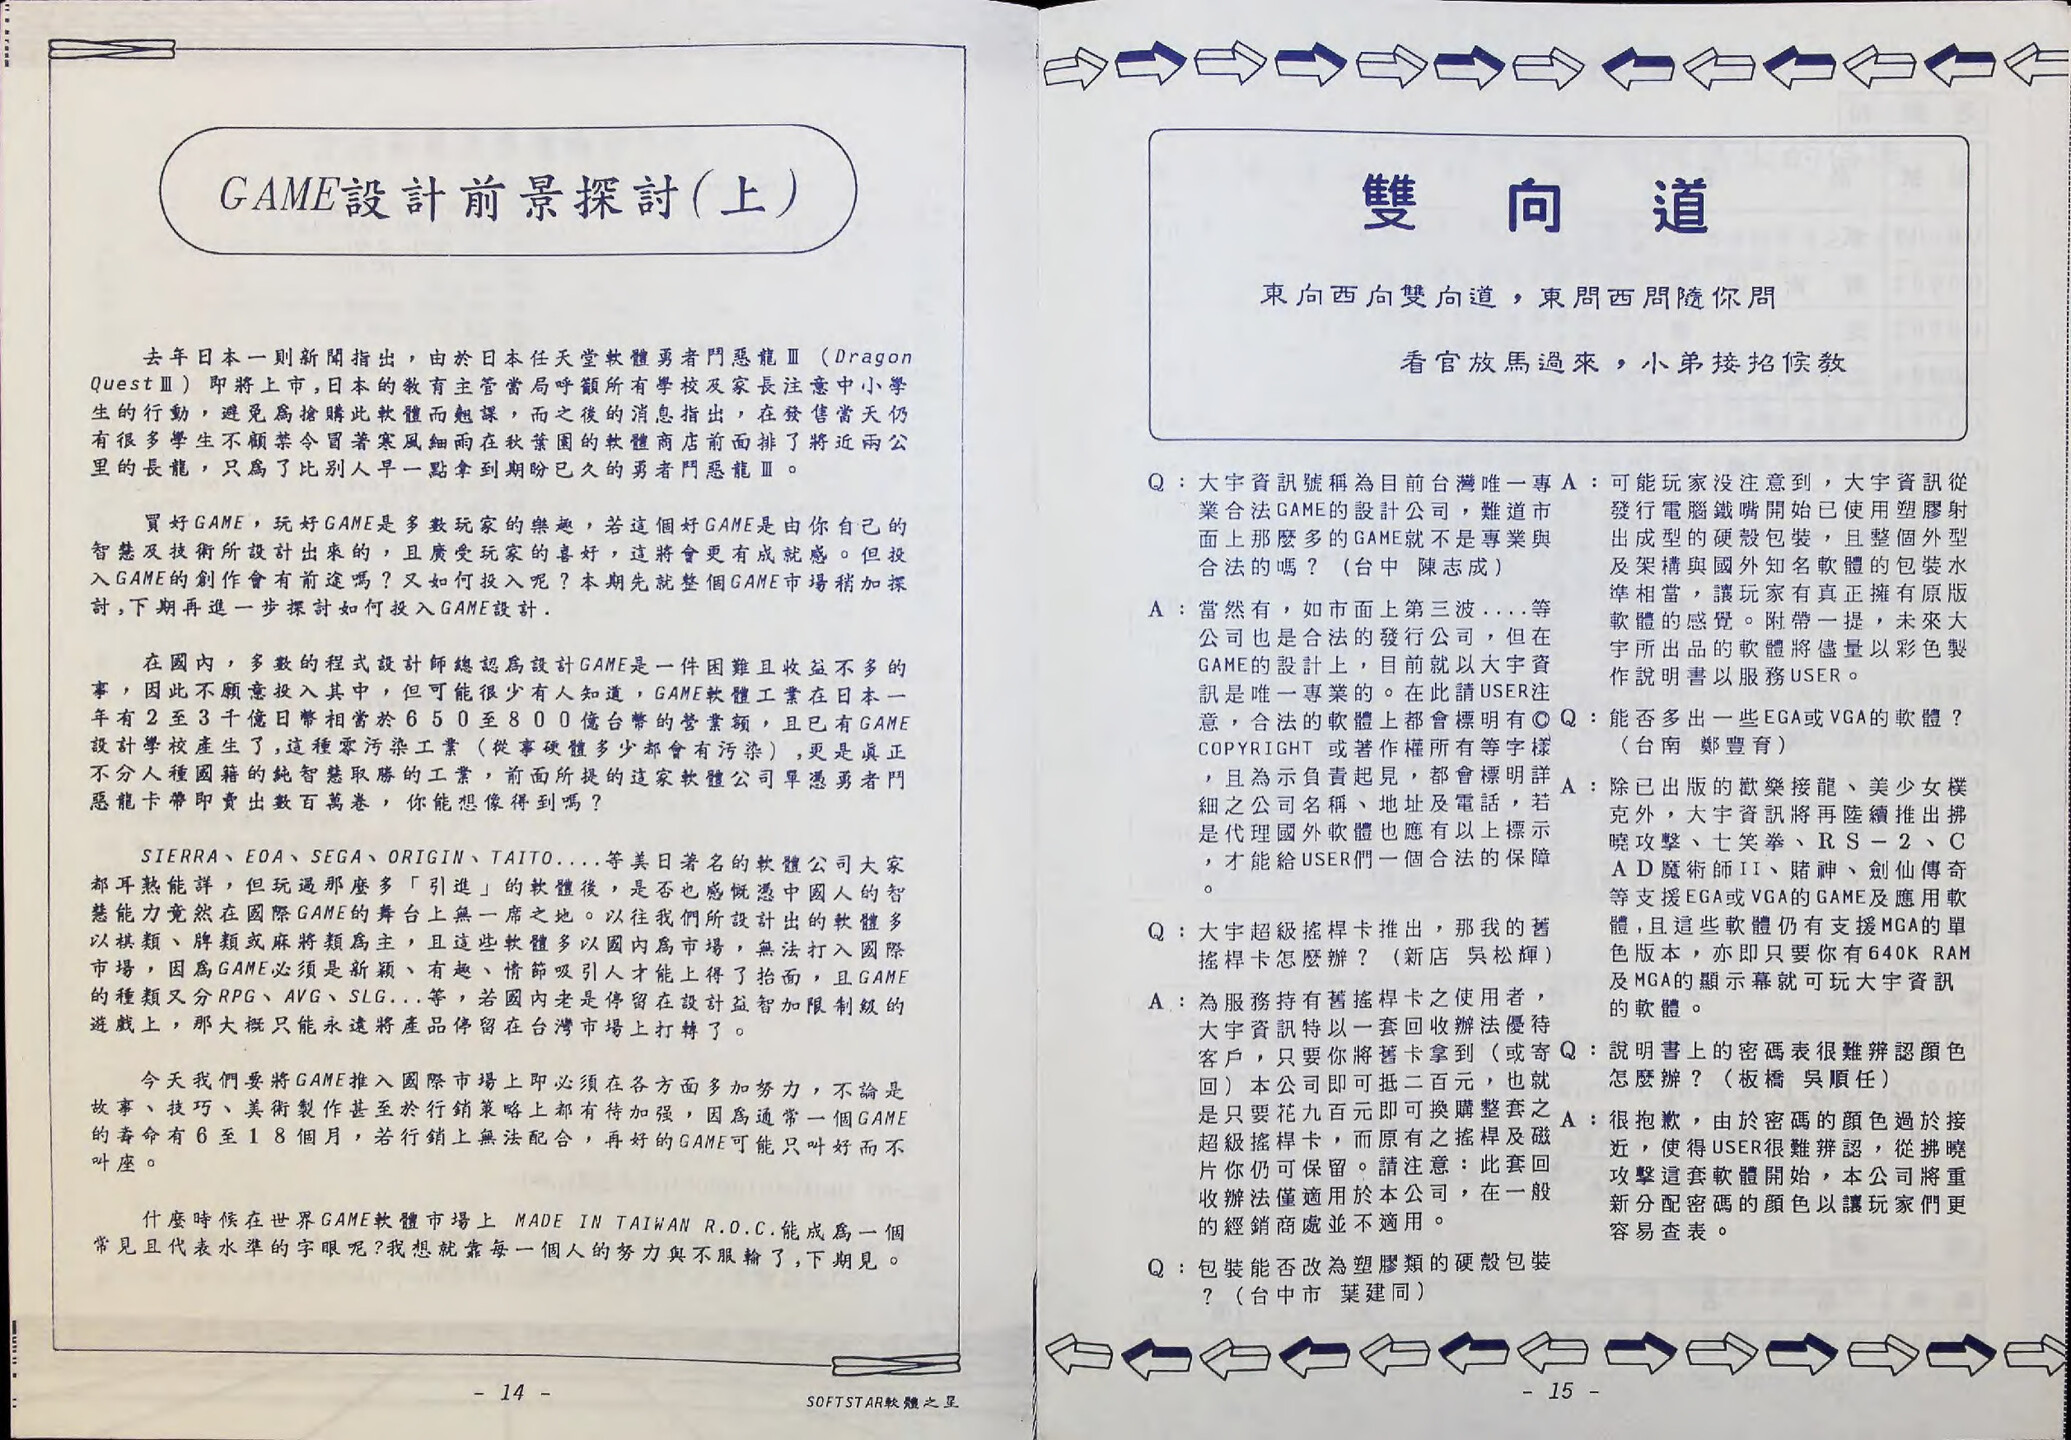 GAME設計前景探討(上)
去年日本一則新聞指出，由於日本任天堂軟體勇者鬥惡龍Ⅲ（Dragon
QuestⅢ）即將上市,日本的教育主管當局呼籲所有學校及家長注意中小學
生的行動，避免為搶購此軟體而翹課，而之後的消息指出，在發售當天仍
有很多學生不顧禁令冒著寒風細雨在秋葉園的軟體商店前面排了將近兩公
里的長龍，只為了比別人早一點拿到期盼已久的勇者鬥惡龍Ⅲ。
買好GAME，玩好GAME是多數玩家的樂趣，若這個好GAME是由你自己的
智慧及技術所設計出來的，且廣受玩家的喜好，這將會更有成就感。但投
入GAME的創作會有前途嗎？又如何投入呢？本期先就整個GAME市場稍加探
討,下期再進一步探討如何投入GAME設計.
在國內，多數的程式設計師總認為設計GAME是一件困難且收益不多的
事，因此不願意投入其中，但可能很少有人知道，GAME軟體工業在日本一
年有２至３千億日幣相當於６５０至８００億台幣的營業額，且已有GAME
設計學校產生了,這種零污染工業（從事硬體多少都會有污染）,更是真正
不分人種國籍的純智慧取勝的工業，前面所提的這家軟體公司單憑勇者鬥
惡龍卡帶即賣出數百萬卷，你能想像得到嗎？
SIERRA、EOA、SEGA、ORIGIN、TAITO....等美日著名的軟體公司大家
都耳熟能詳，但玩過那麼多「引進」的軟體後，是否也感慨憑中國人的智
慧能力竟然在國際GAME的舞台上無一席之地。以往我們所設計出的軟體多
以棋類、牌類或麻將類為主，且這些軟體多以國內為市場，無法打入國際
市場，因為GAME必須是新穎、有趣、情節吸引人才能上得了抬面，且GAME
的種類又分RPG、AVG、SLG...等，若國內老是停留在設計益智加限制級的
遊戲上，那大概只能永遠將產品停留在台灣市場上打轉了。
今天我們要將GAME推入國際市場上即必須在各方面多加努力，不論是
故事、技巧、美術製作甚至於行銷策略上都有待加强，因為通常一個GAME
的壽命有６至１８個月，若行銷上無法配合，再好的GAME可能只叫好而不
叫座。
什麼時候在世界GAME軟體市場上 MADE IN TAIWAN R.O.C.能成為一個
常見且代表水準的字眼呢?我想就靠每一個人的努力與不服輸了,下期見。
- 14 -
SOFTSTAR軟體之星
雙向道
東向西向雙向道，東問西問隨你問
看官放馬過來，小弟接招候教
Q：大宇資訊號稱為目前台灣唯一專
業合法GAME的設計公司，難道市
面上那麼多的GAME就不是專業與
合法的嗎？（台中 陳志成）
A：當然有，如市面上第三波....等
公司也是合法的發行公司，但在
GAME的設計上，目前就以大宇資
訊是唯一專業的。在此請USER注
意，合法的軟體上都會標明有©
COPYRIGHT 或著作權所有等字樣
，且為示負責起見，都會標明詳
細之公司名稱、地址及電話，若
是代理國外軟體也應有以上標示
，才能給USER們一個合法的保障
。
Q：大宇超級搖桿卡推出，那我的舊
搖桿卡怎麼辦？（新店 吳松輝）
A：為服務持有舊搖桿卡之使用者，
大宇資訊特以一套回收辦法優待
客戶，只要你將舊卡拿到（或寄
回）本公司即可抵二百元，也就
是只要花九百元即可換購整套之
超級搖桿卡，而原有之搖桿及磁
片你仍可保留。請注意：此套回
收辦法僅適用於本公司，在一般
的經銷商處並不適用。
Q：包裝能否改為塑膠類的硬殼包裝
？（台中市 葉建同）
A：可能玩家沒注意到，大宇資訊從
發行電腦鐵嘴開始已使用塑膠射
出成型的硬殼包裝，且整個外型
及架構與國外知名軟體的包裝水
準相當，讓玩家有真正擁有原版
軟體的感覺。附帶一提，未來大
宇所出品的軟體將儘量以彩色製
作說明書以服務USER。
Q：能否多出一些EGA或VGA的軟體？
（台南 鄭豐育）
A：除已出版的歡樂接龍、美少女樸
克外，大宇資訊將再陸續推出拂
曉攻擊、七笑拳、ＲＳ－２、Ｃ
ＡＤ魔術師II、賭神、劍仙傳奇
等支援EGA或VGA的GAME及應用軟
體,且這些軟體仍有支援MGA的單
色版本，亦即只要你有640K RAM
及MGA的顯示幕就可玩大宇資訊
的軟體。
Q：說明書上的密碼表很難辨認顏色
怎麼辦？（板橋 吳順任）
A：很抱歉，由於密碼的顏色過於接
近，使得USER很難辨認，從拂曉
攻擊這套軟體開始，本公司將重
新分配密碼的顏色以讓玩家們更
容易查表。
- 15 -